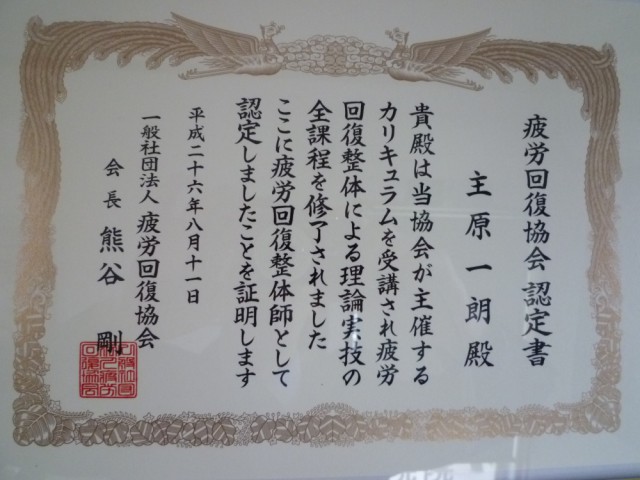 疲労回復協会 認定書
主原一朗殿
貴殿は当協会が主催する
カリキュラムを受講され疲労
回復整体による理論実技の
全課程を修了されました
ここに疲労回復整体師として
認定しましたことを証明します
平成二十六年八月十一日
一般社団法人 疲労回復協会
会長 熊谷 剛